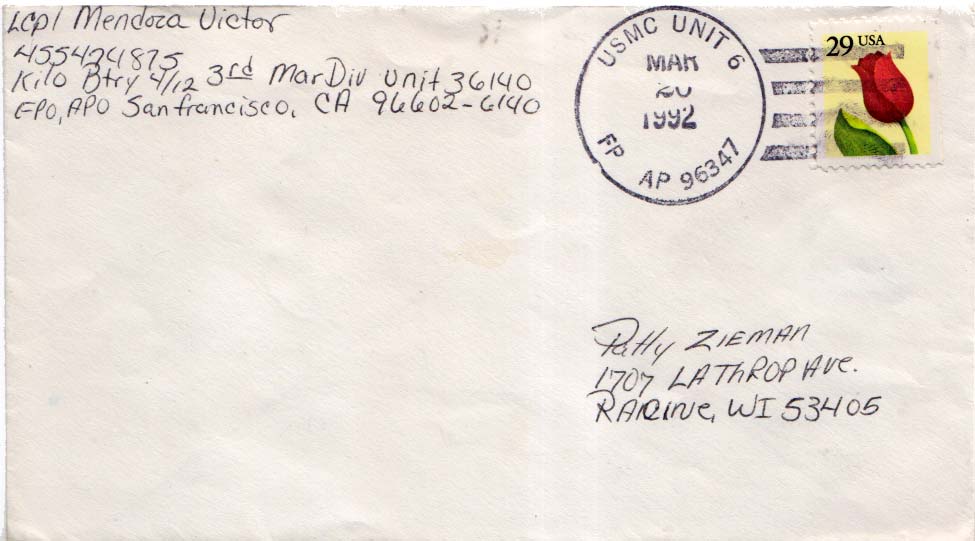 LCpl Mendoza Victor
455424875
Kilo Btry 4/12 3rd MarDiv Unit 36140
FPO, APO San francisco, CA 96602-6140
USMC UNIT 6
MAR
20
1992
FP AP 96347
29 USA
Patty ZIEMAN
1707 LAThROP AVE.
RACINE, WI 53405